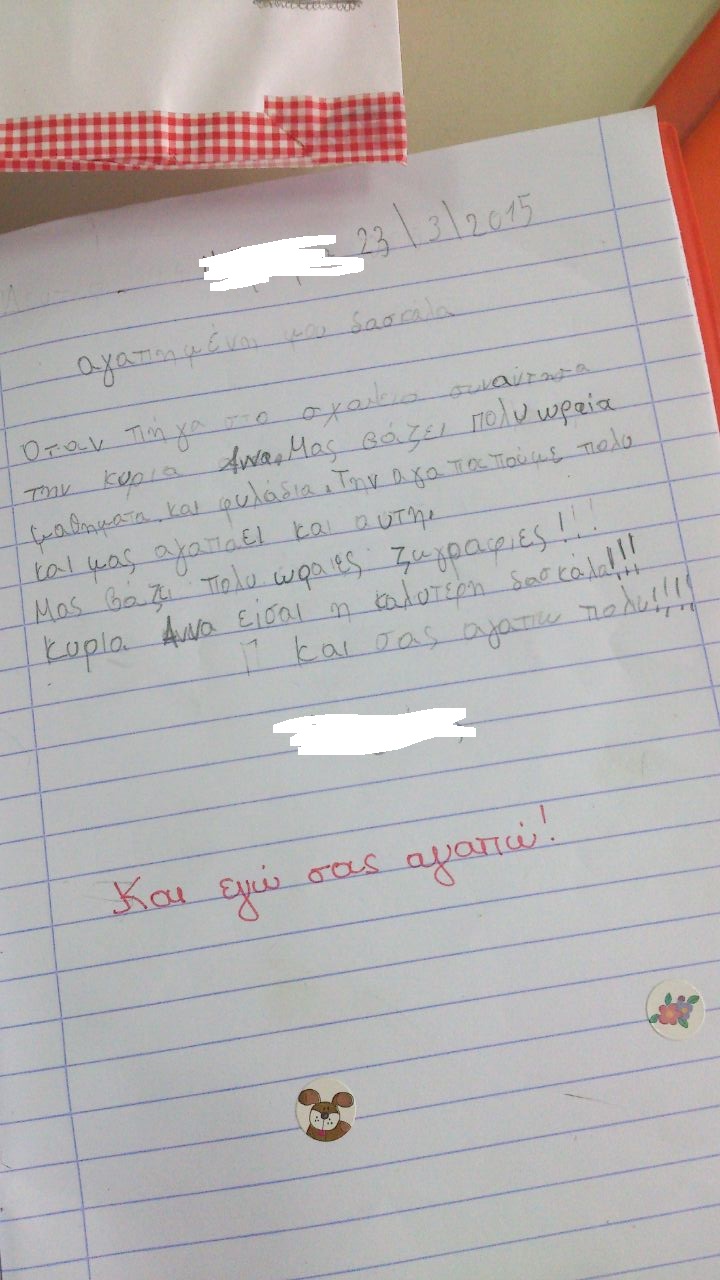 23/3/2015
αγαπημένη μου δασκάλα
Οταν πήγα στο σχολειο συναντησα
την κυρια Αννα. Μας βάζει πολυ ωραία
μαθηματα και φυλάδια. Την αγαπαπούμε πολυ
και μας αγαπαει και αυτη.
Μας βάζει πολυ ωραιες ζωγραφιες!!!
Κυρια Αννα εισαι η καλυτερη δασκάλα!!!
Και σας αγαπω πολυ!!!!
Και εγώ σας αγαπώ!